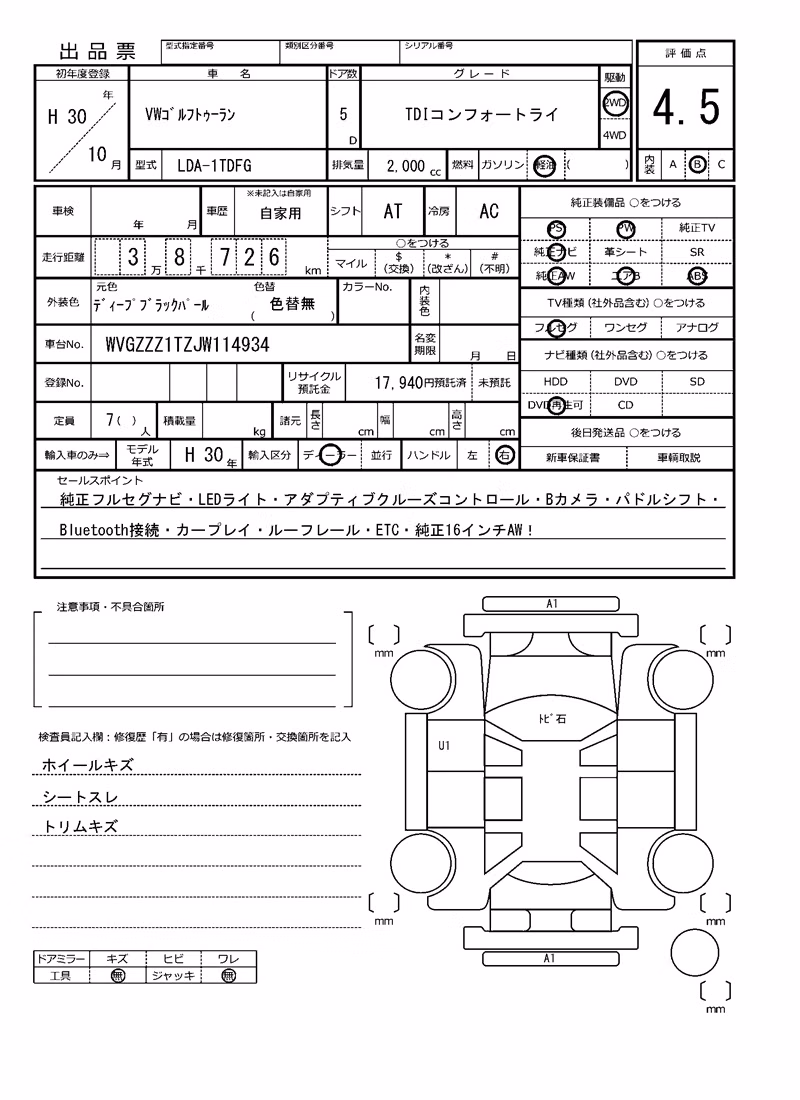 出品票
型式指定番号 類別区分番号 シリアル番号
評価点
4.5
内装 A B C
初年度登録 車名 ドア数 グレード 駆動
H 30 年 10 月
VWゴルフトゥーラン 5 D TDIコンフォートライ 2WD 4WD
型式 LDA-1TDFG 排気量 2,000 cc 燃料 ガソリン 軽油 ( )
車検 年 月 車歴 ※未記入は自家用 自家用 シフト AT 冷房 AC
走行距離 3 万 8 千 7 2 6 km
○をつける
マイル $(交換) *(改ざん) #(不明)
外装色 元色 ディープブラックパール 色替 ( 色替無 ) カラーNo. 内装色
車台No. WVGZZZ1TZJW114934 名変期限 月 日
登録No. リサイクル預託金 17,940円預託済 未預託
定員 7( )人 積載量 kg 諸元 長さ cm 幅 cm 高さ cm
輸入車のみ⇒ モデル年式 H 30 年 輸入区分 ディーラー 並行 ハンドル 左 右
純正装備品 ○をつける
PS PW 純正TV
純正ナビ 革シート SR
純正AW エアB ABS
TV種類(社外品含む)○をつける
フルセグ ワンセグ アナログ
ナビ種類(社外品含む)○をつける
HDD DVD SD
DVD再生可 CD
後日発送品 ○をつける
新車保証書 車輌取説
セールスポイント
純正フルセグナビ・LEDライト・アダプティブクルーズコントロール・Bカメラ・パドルシフト・
Bluetooth接続・カープレイ・ルーフレール・ETC・純正16インチAW!
注意事項・不具合箇所
検査員記入欄:修復歴「有」の場合は修復箇所・交換箇所を記入
ホイールキズ
シートスレ
トリムキズ
ドアミラー キズ ヒビ ワレ
工具 無 ジャッキ 無
A1
mm mm
トビ石
U1
mm mm
A1
mm